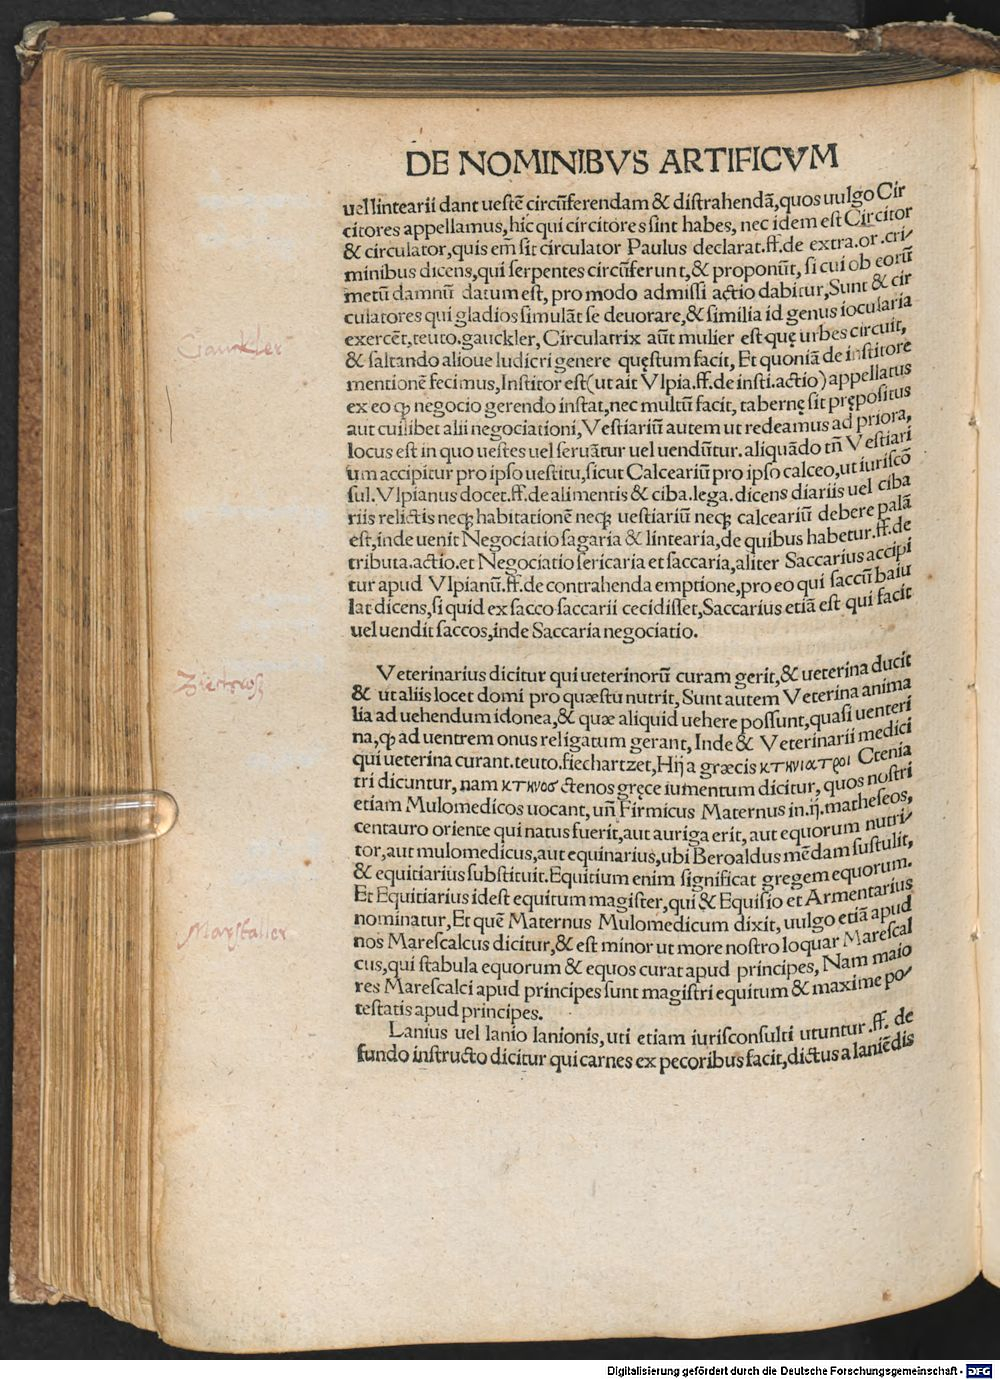 DE NOMINIBVS ARTIFICVM
uel lintearii dant uestē circūferendam & distrahendā, quos uulgo Cir
citores appellamus, hic qui circitores sint habes, nec idem est Circitor
& circulator, quis em̄ sit circulator Paulus declarat.ff.de extra.or.cri/
minibus dicens, qui serpentes circūferunt, & proponūt, si cui ob eorū
metū damnū datum est, pro modo admissi actio dabitur, Sunt & cir
culatores qui gladios simulāt se deuorare, & similia id genus iocularia
exercēt, teuto.gauckler, Circulatrix aūt mulier est quę urbes circuit,
& saltando alioue ludicri genere quęstum facit, Et quoniā de institore
mentionē fecimus, Institor est (ut ait Vlpia.ff.de insti.actio) appellatus
ex eo ꝙ negocio gerendo instat, nec multū facit, tabernę sit prępositus
aut cuilibet alii negociationi, Vestiariū autem ut redeamus ad priora,
locus est in quo uestes uel seruātur uel uendūtur. aliquādo tn̄ Vestiari
um accipitur pro ipso uestitu, sicut Calceariū pro ipso calceo, ut iuriscō
sul. Vlpianus docet.ff.de alimentis & ciba.lega.dicens diariis uel ciba
riis relictis neqꝫ habitationē neqꝫ uestiariū neqꝫ calceariū debere palā
est, inde uenit Negociatio sagaria & lintearia, de quibus habetur.ff.de
tributa.actio.et Negociatio sericaria et saccaria, aliter Saccarius accipi
tur apud Vlpianū.ff.de contrahenda emptione, pro eo qui saccū baiu
lat dicens, si quid ex sacco saccarii cecidisset, Saccarius etiā est qui facit
uel uendit saccos, inde Saccaria negociatio.
Gauckler
Veterinarius dicitur qui ueterinorū curam gerit, & ueterina ducit
& ut aliis locet domi pro quæstu nutrit, Sunt autem Veterina anima
lia ad uehendum idonea, & quæ aliquid uehere possunt, quasi uenteri
na, ꝙ ad uentrem onus religatum gerant, Inde & Veterinarii medici
qui ueterina curant. teuto.fiechartzet, Hij a græcis κτηνιατροι Ctenia
tri dicuntur, nam κτηνοσ ctenos gręce iumentum dicitur, quos nostri
etiam Mulomedicos uocant, un̄ Firmicus Maternus in.ij.matheseos,
centauro oriente qui natus fuerit, aut auriga erit, aut equorum nutri/
tor, aut mulomedicus, aut equinarius, ubi Beroaldus mēdam sustulit,
& equitiarius substituit. Equitium enim significat gregem equorum.
Et Equitiarius idest equitum magister, qui & Equisio et Armentarius
nominatur, Et quē Maternus Mulomedicum dixit, uulgo etiā apud
nos Marescalcus dicitur, & est minor ut more nostro loquar Marescal
cus, qui stabula equorum & equos curat apud principes, Nam maio
res Marescalci apud principes sunt magistri equitum & maxime po/
testatis apud principes.
Marstaller
Lanius uel lanio lanionis, uti etiam iurisconsulti utuntur.ff. de
fundo instructo dicitur qui carnes ex pecoribus facit, dictus a laniēdis
Digitalisierung gefördert durch die Deutsche Forschungsgemeinschaft - DFG